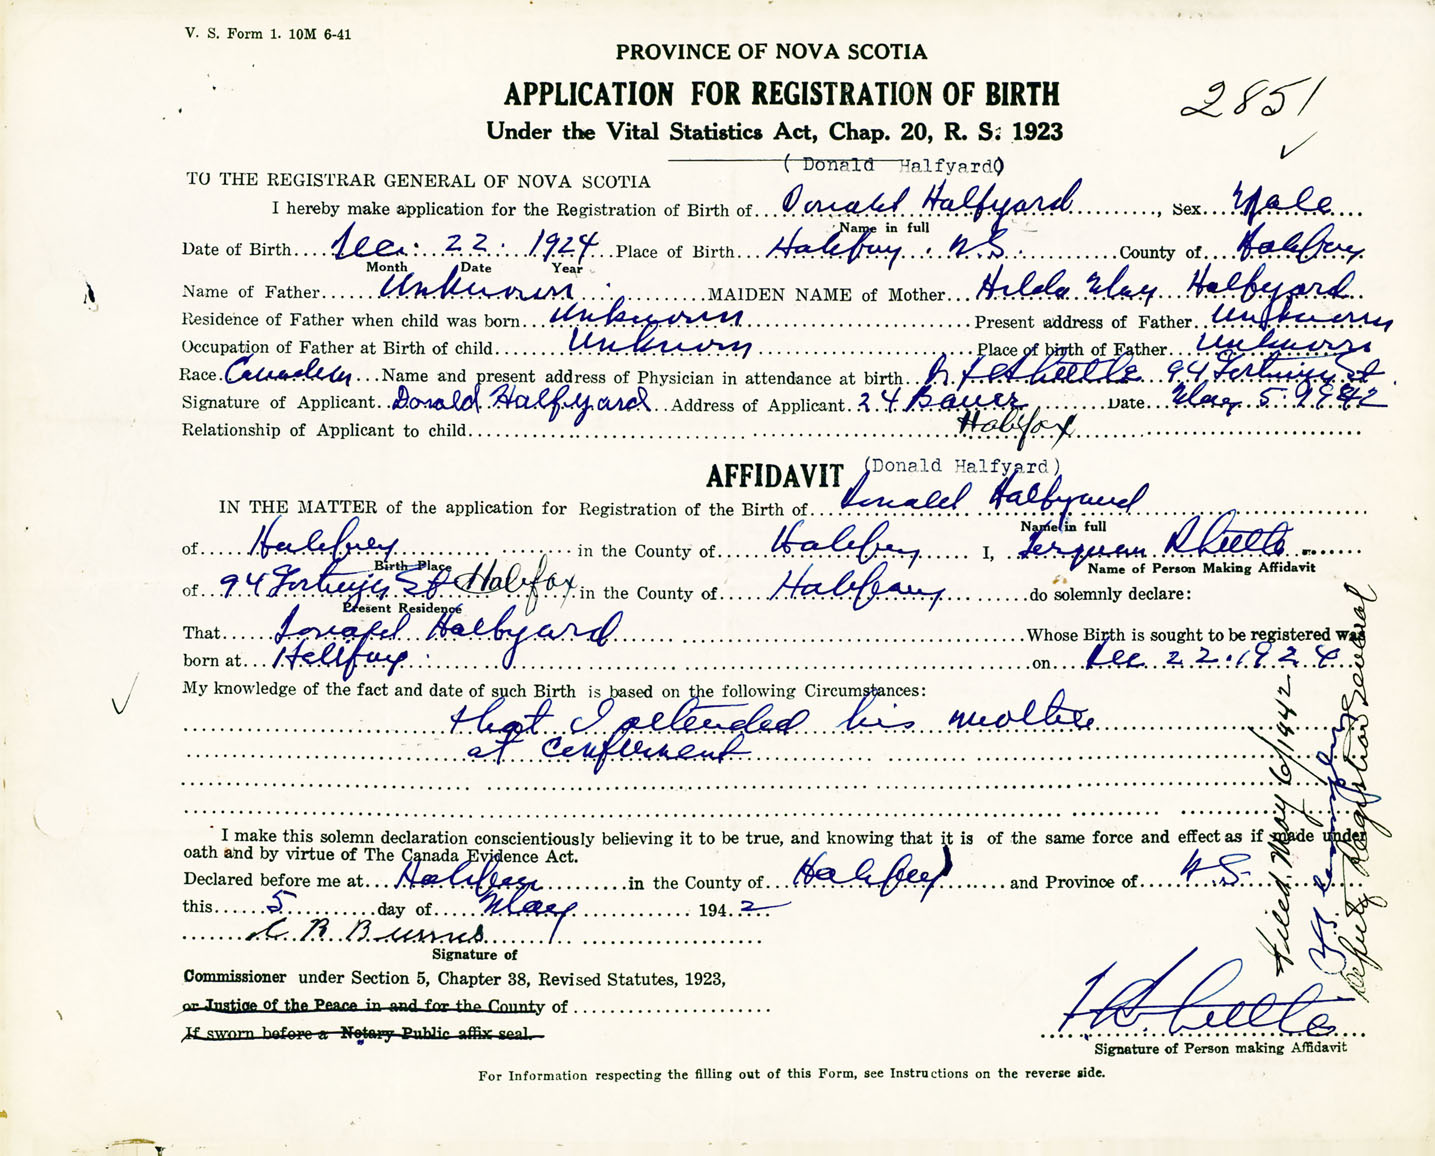 V. S. Form 1. 10M 6-41
PROVINCE OF NOVA SCOTIA
APPLICATION FOR REGISTRATION OF BIRTH
2851
Under the Vital Statistics Act, Chap. 20, R. S. 1923
(Donald Halfyard)
TO THE REGISTRAR GENERAL OF NOVA SCOTIA
I hereby make application for the Registration of Birth of Donald Halfyard, Sex Male
Name in full
Date of Birth Dec. 22. 1924 Place of Birth Halifax. N.S. County of Halifax
Month Date Year
Name of Father Unknown MAIDEN NAME of Mother Hilda May Halfyard
Residence of Father when child was born Unknown Present address of Father Unknown
Occupation of Father at Birth of child Unknown Place of birth of Father Unknown
Race Canadian Name and present address of Physician in attendance at birth 94 St
Signature of Applicant Donald Halfyard Address of Applicant 24 Bauer Date May 5 1942
Halifax
Relationship of Applicant to child
AFFIDAVIT (Donald Halfyard)
IN THE MATTER of the application for Registration of the Birth of Donald Halfyard
Name in full
of Halifax in the County of Halifax I,
Birth Place Name of Person Making Affidavit
of 94 St Halifax in the County of Halifax do solemnly declare:
Present Residence
That Donald Halfyard Whose Birth is sought to be registered was
born at Halifax on Dec 22. 1924
My knowledge of the fact and date of such Birth is based on the following Circumstances:
that I attended his mother
at confinement
I make this solemn declaration conscientiously believing it to be true, and knowing that it is of the same force and effect as if made under
oath and by virtue of The Canada Evidence Act.
Declared before me at Halifax in the County of Halifax and Province of N.S.
this 5 day of May 1942
Signature of
Commissioner under Section 5, Chapter 38, Revised Statutes, 1923,
or Justice of the Peace in and for the County of
If sworn before a Notary Public affix seal.
Signature of Person making Affidavit
For Information respecting the filling out of this Form, see Instructions on the reverse side.
Filed May 6/1942
Deputy Registrar General